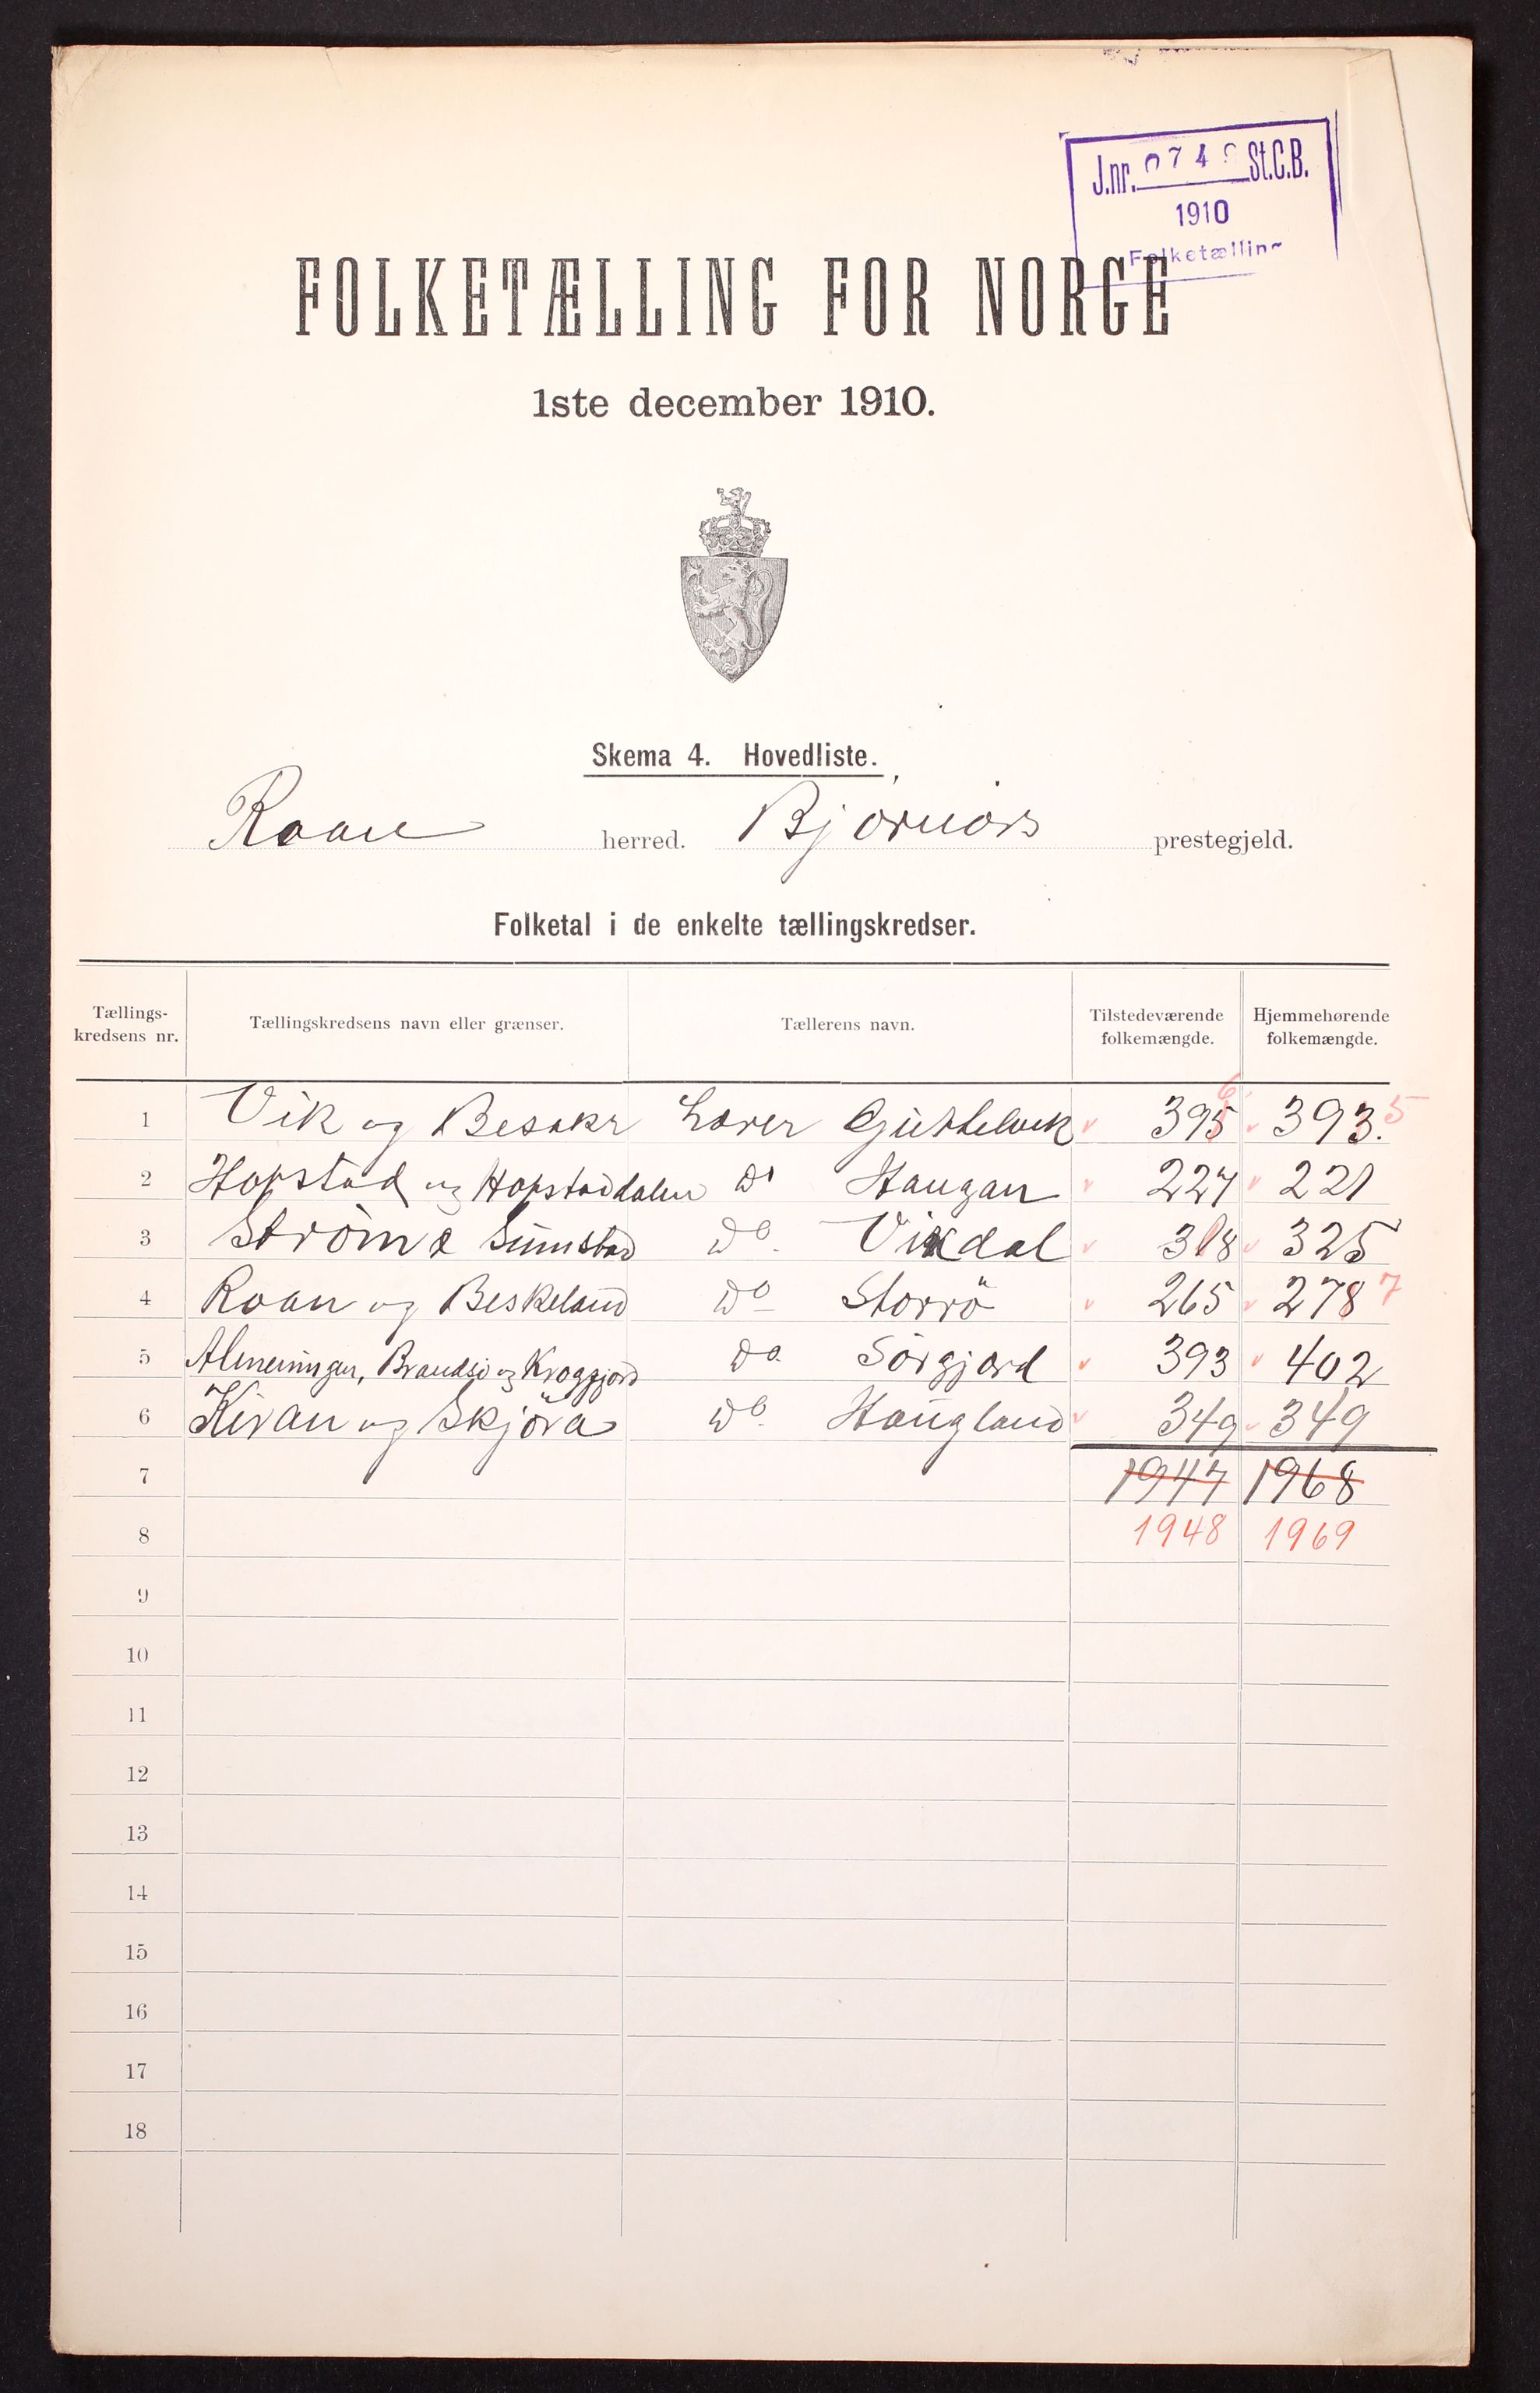 J.nr. 0749 St.C.B.
1910
Folketælling
FOLKETÆLLING FOR NORGE
1ste december 1910.
Skema 4. Hovedliste.
Roan herred. Bjørnør prestegjeld.
Folketal i de enkelte tællingskredser.
Tællings-kredsens nr. Tællingskredsens navn eller grænser. Tællerens navn. Tilstedeværende folkemængde. Hjemmehørende folkemængde.
1 Vik og Besaker Lærer 395 6 393. 5
2 Hopstad og Hopstaddalen Do Haugan 227 221
3 Strøm & Sumstad Do Vikdal 318 325
4 Roan og Beskeland Do Storrö 265 278 7
5 Almeningen, Brandsø og Kroggjord Do Sörgjerd 393 402
6 Kiran og Skjöra Do Haugland 349 349
7 1947 1968
8 1948 1969
9
10
11
12
13
14
15
16
17
18